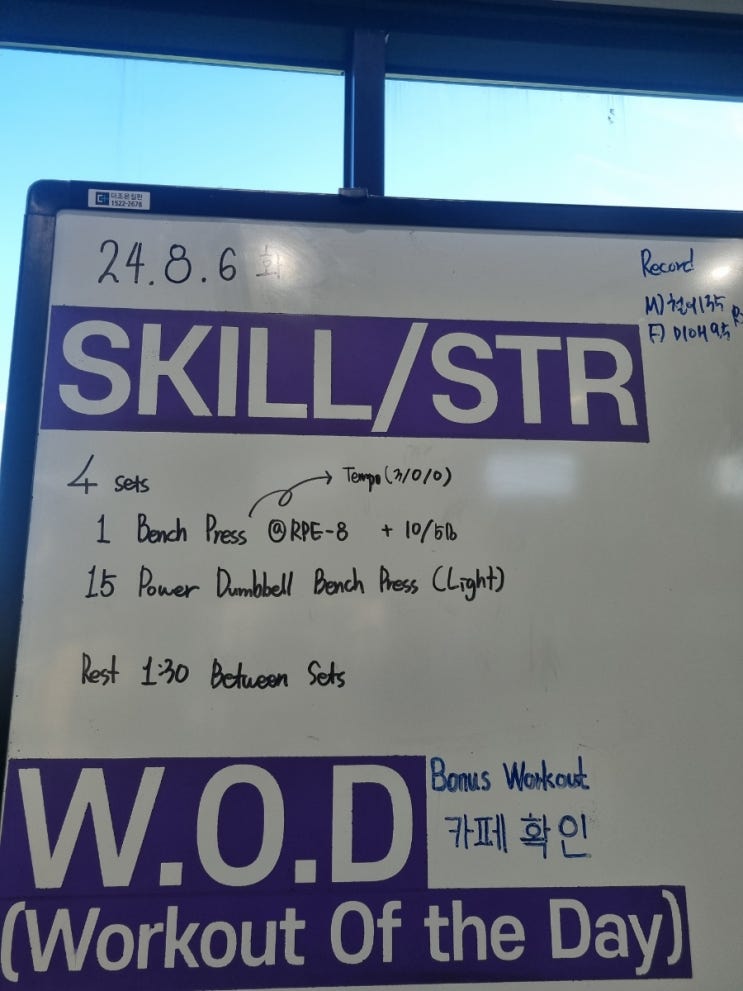 다조은칠판
1522-2678
24.8.6 화
Record
M)
F)
SKILL/STR
4 sets
Tempo (3/0/0)
1 Bench Press @RPE-8 + 10/5lb
15 Power Dumbbell Bench Press (Light)
Rest 1:30 Between Sets
W.O.D
Bonus Workout
카페 확인
(Workout Of the Day)